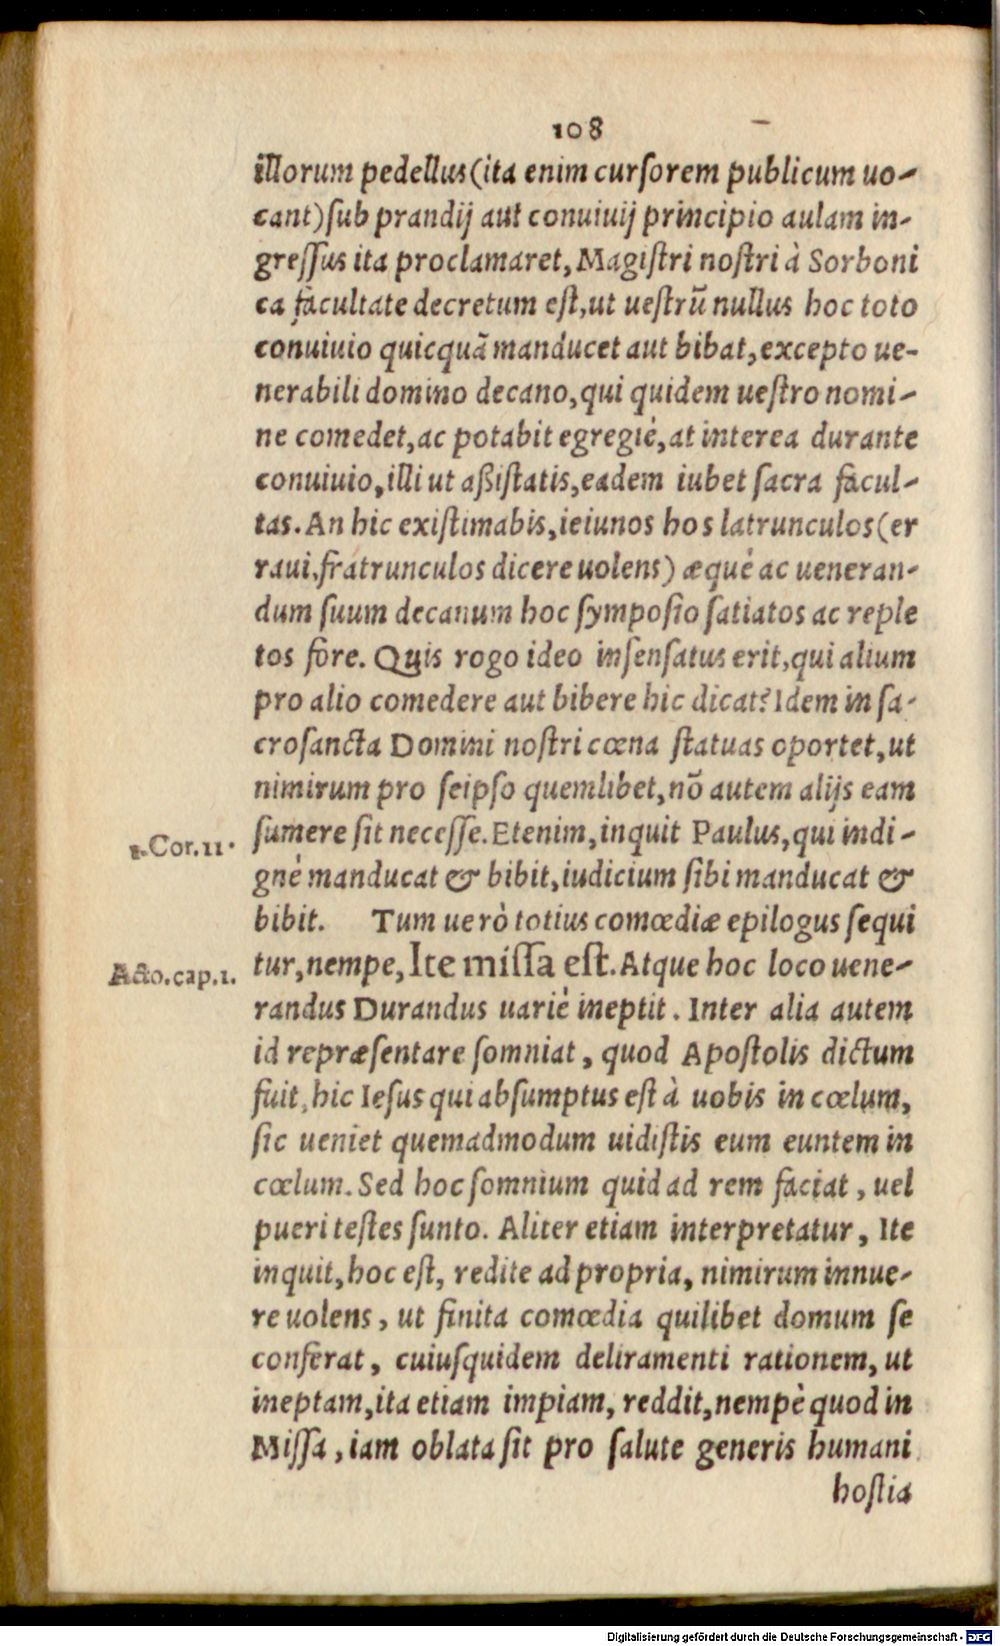 108
illorum pedellus (ita enim cursorem publicum uo-
cant) sub prandij aut conuiuij principio aulam in-
gressus ita proclamaret, Magistri nostri à Sorboni
ca facultate decretum est, ut uestrũ nullus hoc toto
conuiuio quicquã manducet aut bibat, excepto ue-
nerabili domino decano, qui quidem uestro nomi-
ne comedet, ac potabit egregiè, at interea durante
conuiuio, illi ut aßistatis, eadem iubet sacra facul-
tas. An hic existimabis, ieiunos hos latrunculos (er
raui, fratrunculos dicere uolens) æquè ac ueneran-
dum suum decanum hoc symposio satiatos ac reple
tos fore. Quis rogo ideo insensatus erit, qui alium
pro alio comedere aut bibere hic dicat? Idem in sa-
crosancta Domini nostri cœna statuas oportet, ut
nimirum pro seipso quemlibet, nõ autem alijs eam
1.Cor.11.
sumere sit necesse. Etenim, inquit Paulus, qui indi-
gnè manducat & bibit, iudicium sibi manducat &
bibit. Tum uerò totius comœdiæ epilogus sequi
Acto.cap.1.
tur, nempe, Ite missa est. Atque hoc loco uene-
randus Durandus uariè ineptit. Inter alia autem
id repræsentare somniat, quod Apostolis dictum
fuit, hic Iesus qui absumptus est à uobis in cœlum,
sic ueniet quemadmodum uidistis eum euntem in
cœlum. Sed hoc somnium quid ad rem faciat, uel
pueri testes sunto. Aliter etiam interpretatur, Ite
inquit, hoc est, redite ad propria, nimirum innue-
re uolens, ut finita comœdia quilibet domum se
conferat, cuiusquidem deliramenti rationem, ut
ineptam, ita etiam impiam, reddit, nempè quod in
Missa, iam oblata sit pro salute generis humani
hostia
Digitalisierung gefördert durch die Deutsche Forschungsgemeinschaft - DFG